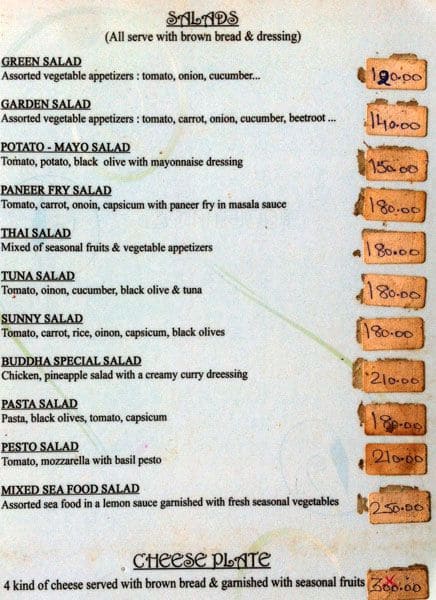 SALADS
(All serve with brown bread & dressing)
GREEN SALAD
Assorted vegetable appetizers : tomato, onion, cucumber... 120.00
GARDEN SALAD
Assorted vegetable appetizers : tomato, carrot, onion, cucumber, beetroot ... 140.00
POTATO - MAYO SALAD
Tomato, potato, black olive with mayonnaise dressing 150.00
PANEER FRY SALAD
Tomato, carrot, onoin, capsicum with paneer fry in masala sauce 180.00
THAI SALAD
Mixed of seasonal fruits & vegetable appetizers 180.00
TUNA SALAD
Tomato, oinon, cucumber, black olive & tuna 180.00
SUNNY SALAD
Tomato, carrot, rice, oinon, capsicum, black olives 180.00
BUDDHA SPECIAL SALAD
Chicken, pineapple salad with a creamy curry dreessing 210.00
PASTA SALAD
Pasta, black olives, tomato, capsicum 180.00
PESTO SALAD
Tomato, mozzarella with basil pesto 210.00
MIXED SEA FOOD SALAD
Assorted sea food in a lemon sauce garnished with fresh seasonal vegetables 250.00
CHEESE PLATE
4 kind of cheese served with brown bread & garnished with seasonal fruits 300.00